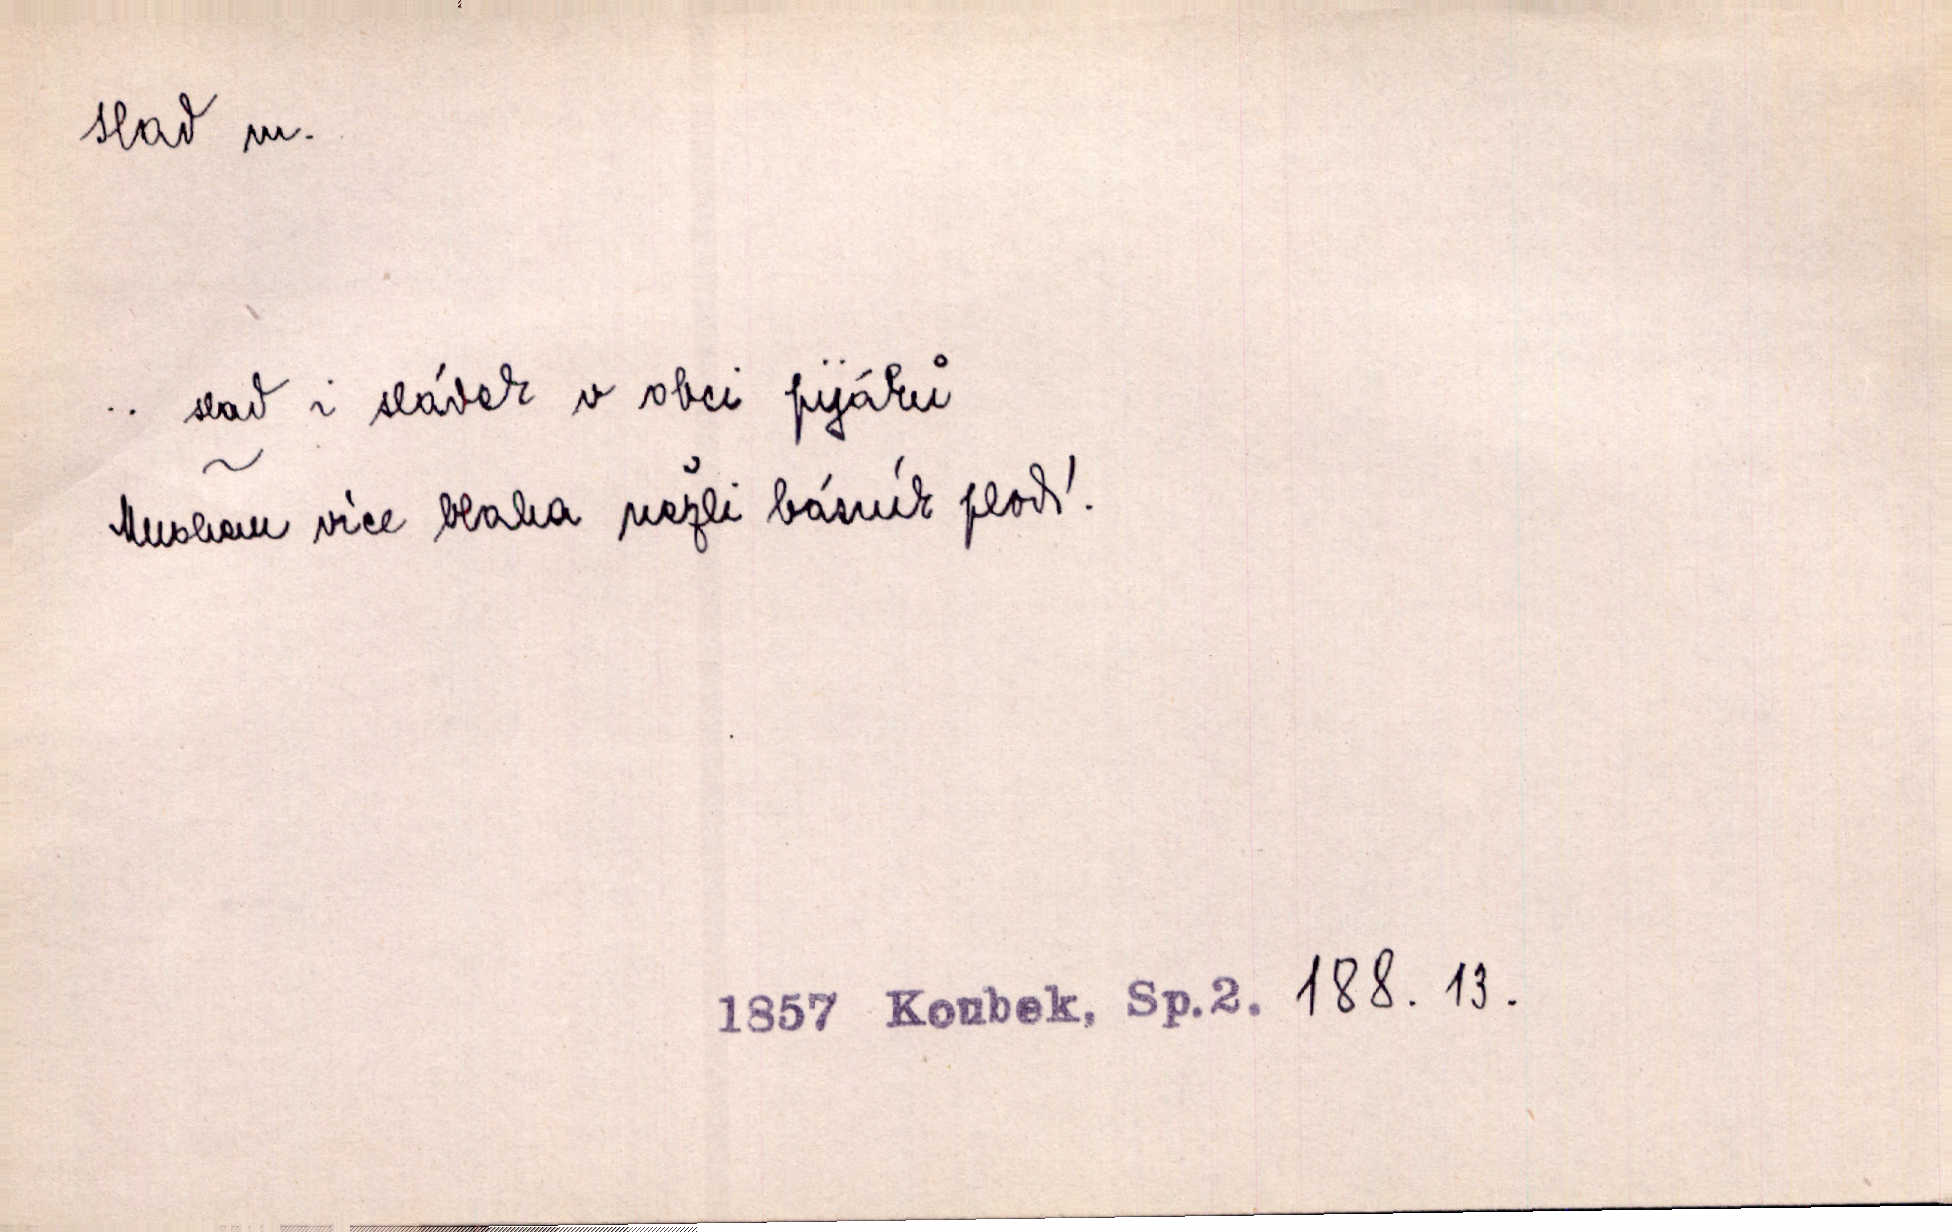 slad m.
.. slad i sládek v obci pijáků
Mnohem více blaha nežli básník plodí.
1857 Koubek, Sp.2. 188. 13.